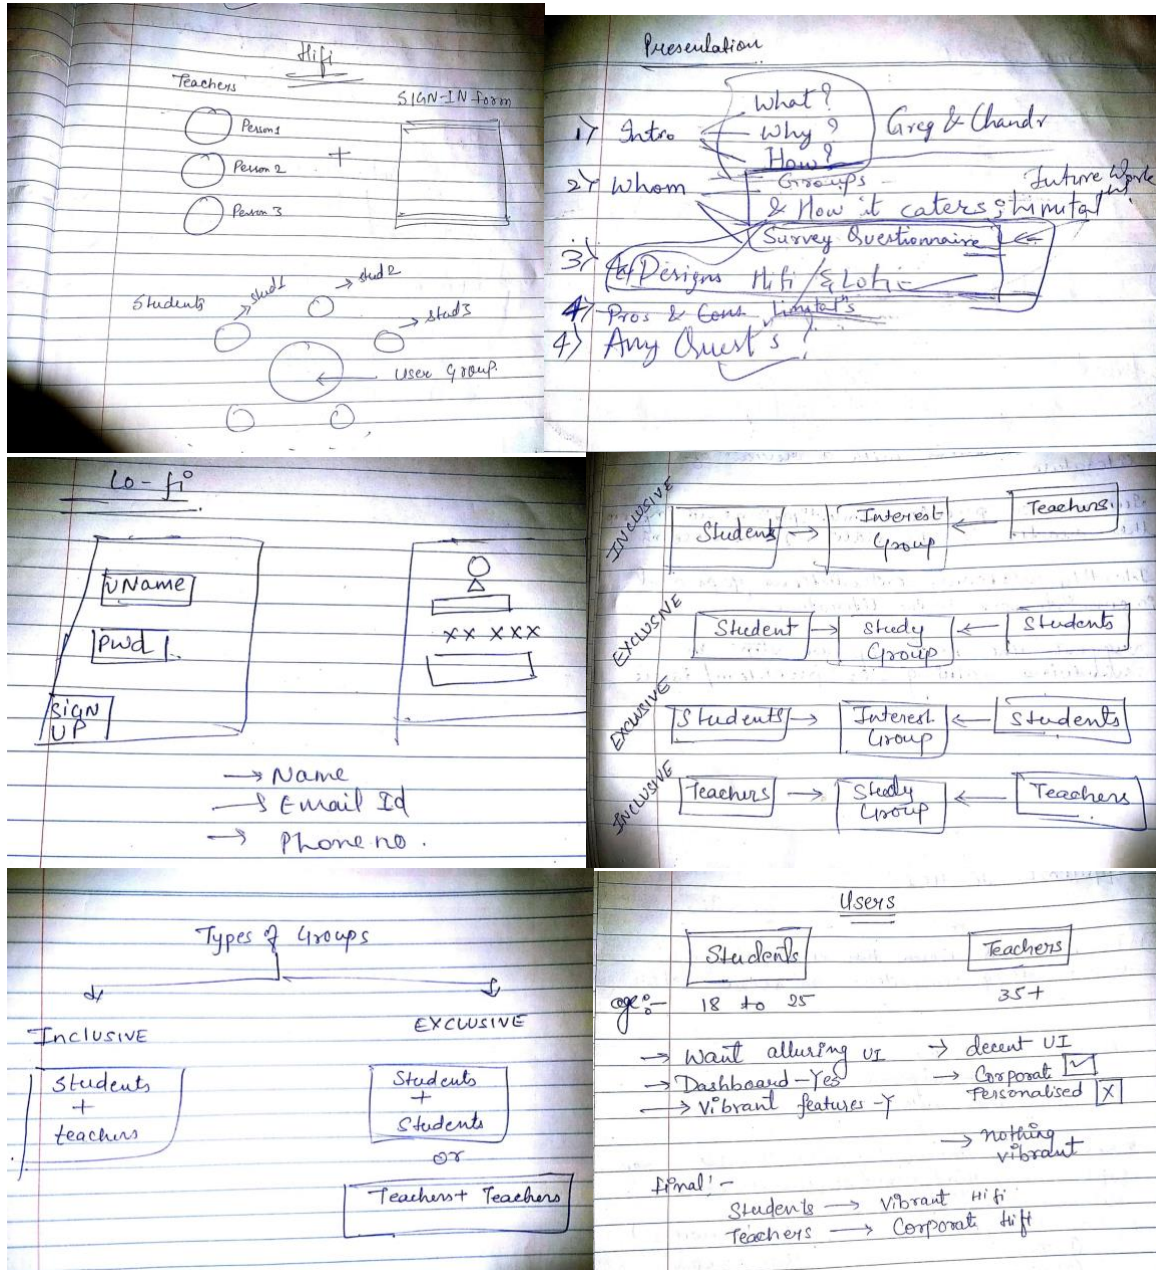 Hifi
Teachers
SIGN-IN form
Person 1
+
Person 2
Person 3
Students
stud1
stud2
stud3
User Group
Presentation
What?
1) Intro
Why?
Greg & Chandr
How?
2) Whom
Groups
Future Work
& How it caters
Survey Questionnaire
3)
Designs Hifi & Lofi
4) Pros & Cons
4) Any Quest's?
Lo-fi
UName
Pwd
SIGN
UP
XX XXX
→ Name
→ Email Id
→ Phone no.
INCLUSIVE
Students → Interest Group ← Teachers
EXCLUSIVE
Student → Study Group ← Students
EXCLUSIVE
Students → Interest Group ← Students
INCLUSIVE
Teachers → Study Group ← Teachers
Types of Groups
INCLUSIVE
EXCLUSIVE
Students
+
teachers
Students
+
Students
or
Teachers + Teachers
Users
Students
Teachers
age:-
18 to 25
35+
→ Want alluring UI
→ decent UI
→ Dashboard - Yes
→ Corporat
→ Vibrant features - Y
Personalised X
→ nothing
vibrant
final:-
Students → Vibrant Hifi
Teachers → Corporate Hifi